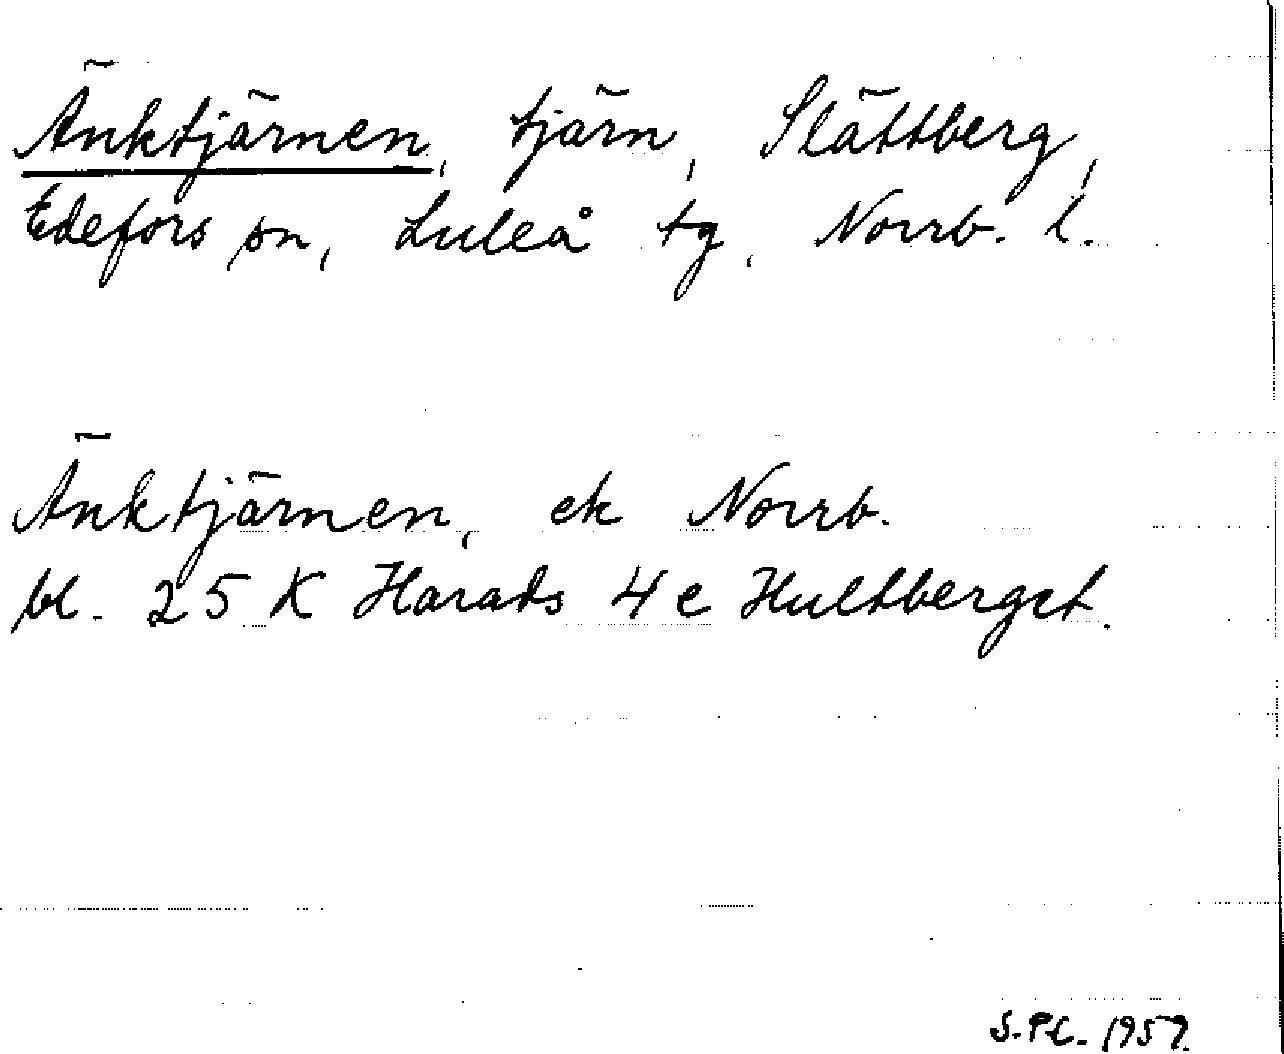 Änktjärnen, tjärn, Slättberg,
Edefors sn, Luleå tg, Norrb. l.
Änktjärnen, ek Norrb.
bl. 25 K Harads 4 e Hultberget.
S.P.L. 1959.